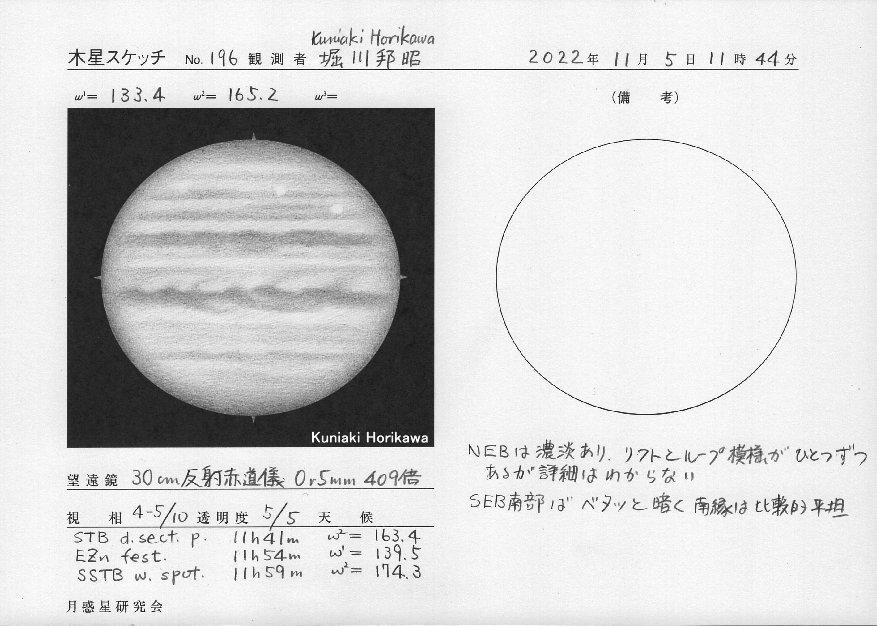 Kuniaki Horikawa
木星スケッチ No. 196 観測者 堀川邦昭 2022年 11月 5日 11時 44分
ω¹= 133.4 ω²= 165.2 ω³=
(備 考)
Kuniaki Horikawa
NEBは濃淡あり. リフトとループ模様がひとつずつ
あるが詳細はわからない
SEB南部はベタッと暗く南縁は比較的平坦
望遠鏡 30cm反射赤道儀 Or5mm 409倍
視 相 4-5/10 透明度 5/5 天 候
STB d.sect. p. 11h41m ω²= 163.4
EZn fest. 11h54m ω¹= 139.5
SSTB w. spot. 11h59m ω²= 174.3
月惑星研究会